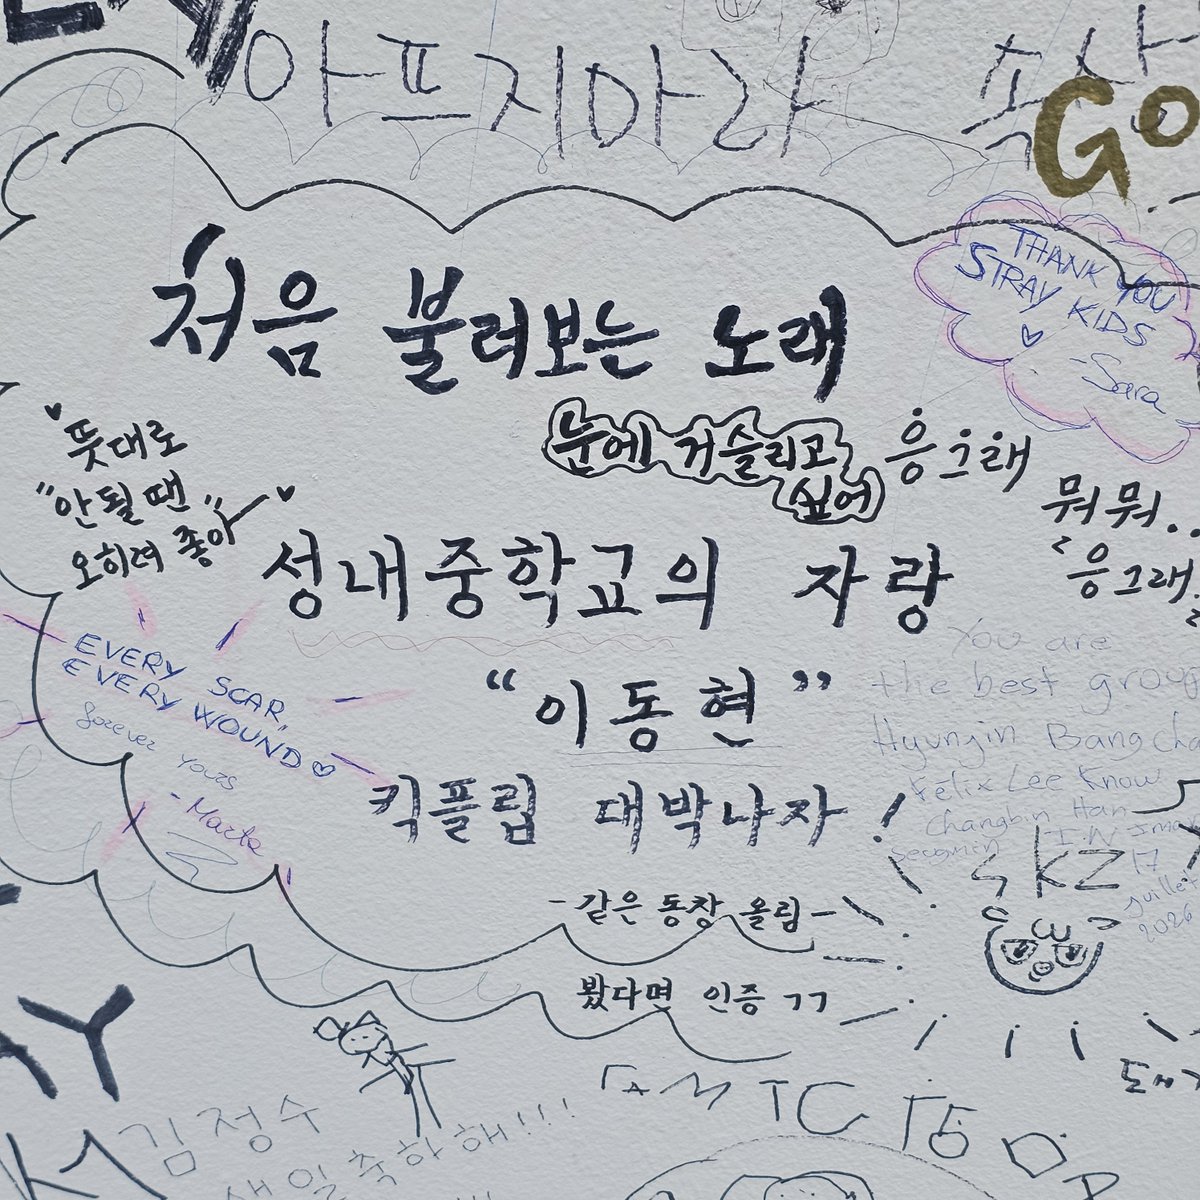 아프지마라
Go
처음 불러보는 노래
THANK YOU
STRAY KIDS
♡
-Sara
눈에 거슬리고
싶어
응 그래
뭐뭐..
응그래
뜻대로
"안될 땐"
오히려 좋아
성내중학교의 자랑
"이동현"
킥플립 대박나자!
-같은 동창 올림-
봤다면 인증 ㄱㄱ
EVERY SCAR,
EVERY WOUND ♡
forever
yours
- Marta
You are
the best group
Hyunjin Bangcha
Felix Lee Know
Changbin Han
Seogmin I.N
17
juillet
2026
skz
김정수
생일축하해!!!